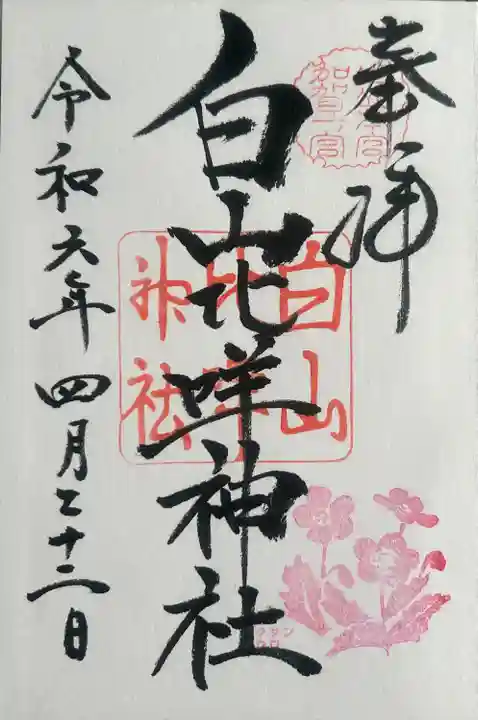 奉拝
白山比咩神社
白山比咩神社
令和六年四月二十二日